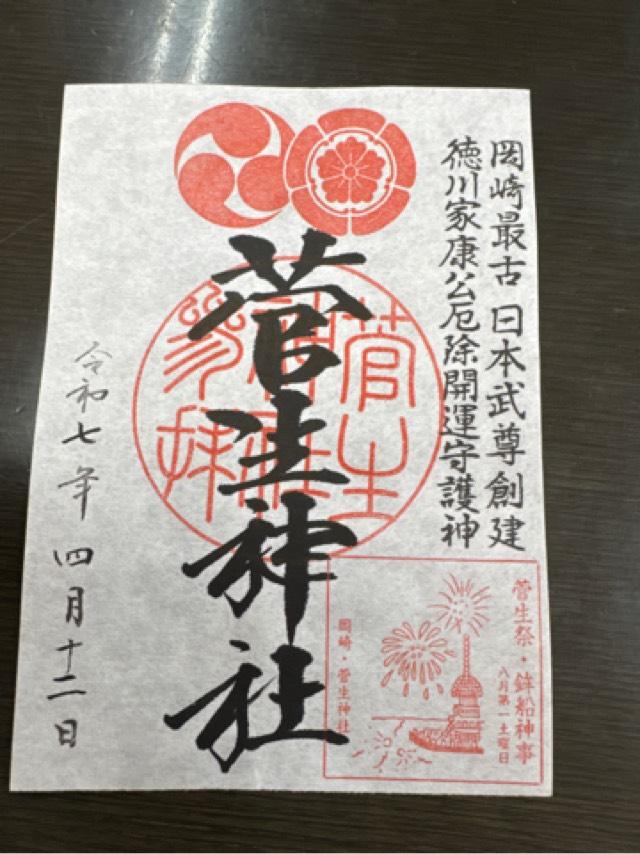 岡崎最古 日本武尊創建
徳川家康公厄除開運守護神
菅生神社
菅生神社
参拝
令和七年 四月十二日
菅生祭・鉾船神事
八月第一土曜日
岡崎・菅生神社